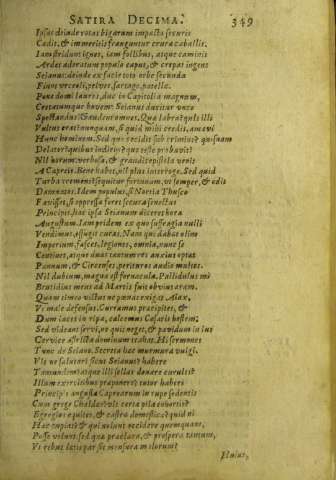 SATIRA DECIMA. 349
Ipsas deinde rotas bigarum impacta securis
Cadit, & immeritis franguntur crura caballis.
Iam stridunt ignes, iam follibus, atque caminis
Ardet adoratum populo caput, & crepat ingens
Seianus: deinde ex facie toto orbe secunda
Fiunt urceoli, pelves, sartago, patellæ.
Pone domi lauros, duc in Capitolia magnum,
Cretatumque bovem: Seianus ducitur unco
Spectandus: Gaudent omnes. Quæ labra? quis illi
Vultus erat? nunquam, si quid mihi credis, amavi
Hunc hominem. Sed quo cecidit sub crimine? quisnam
Delator? quibus indiciis? quo teste probavit?
Nil horum: verbosa, & grandis epistola venit
A Capreis. Bene habet, nil plus interrogo. Sed quid
Turba sequitur fortunam, ut semper, & odit
Damnatos. Idem populus, si Nortia Thusco
Favisset, si oppressa foret secura senectus
Principis, hac ipsa Seianum diceret hora
Augustum. Iam pridem ex quo suffragia nulli
Vendimus, effugit curas. Nam qui dabat olim
Imperium, fasces, legiones, omnia, nunc se
Continet, atque duas tantum res anxius optat
Panem, & Circenses. perituros audio multos.
Nil dubium, magna est fornacula. Pallidulus mi
Brutidius meus ad Martis fuit obvius aram.
Quam timeo victus ne pœnas exigat Aiax,
Vt male defensus. Curramus præcipites, &
Dum iacet in ripa, calcemus Cæsaris hostem;
Sed videant servi, ne quis neget, & pavidum in ius
Cervice astricta dominum trahat. Hi sermones
Tunc de Seiano. Secreta hæc murmura vulgi.
Vis ne salutari sicut Seianus? habere
Tantundem? atque illi sellas donare curules?
Illum exercitibus præponere? tutor haberi
Principis angusta Caprearum in rupe sedentis
Cum grege Chaldæo? vis certe pila cohortes
Egregios equites, & castra domestica? quid ni
Hæc cupias? & qui nolunt occidere quemquam,
Posse volunt. sed quæ præclara, & prospera tantum,
Vt rebus lætis par sit mensura malorum?
Huius,